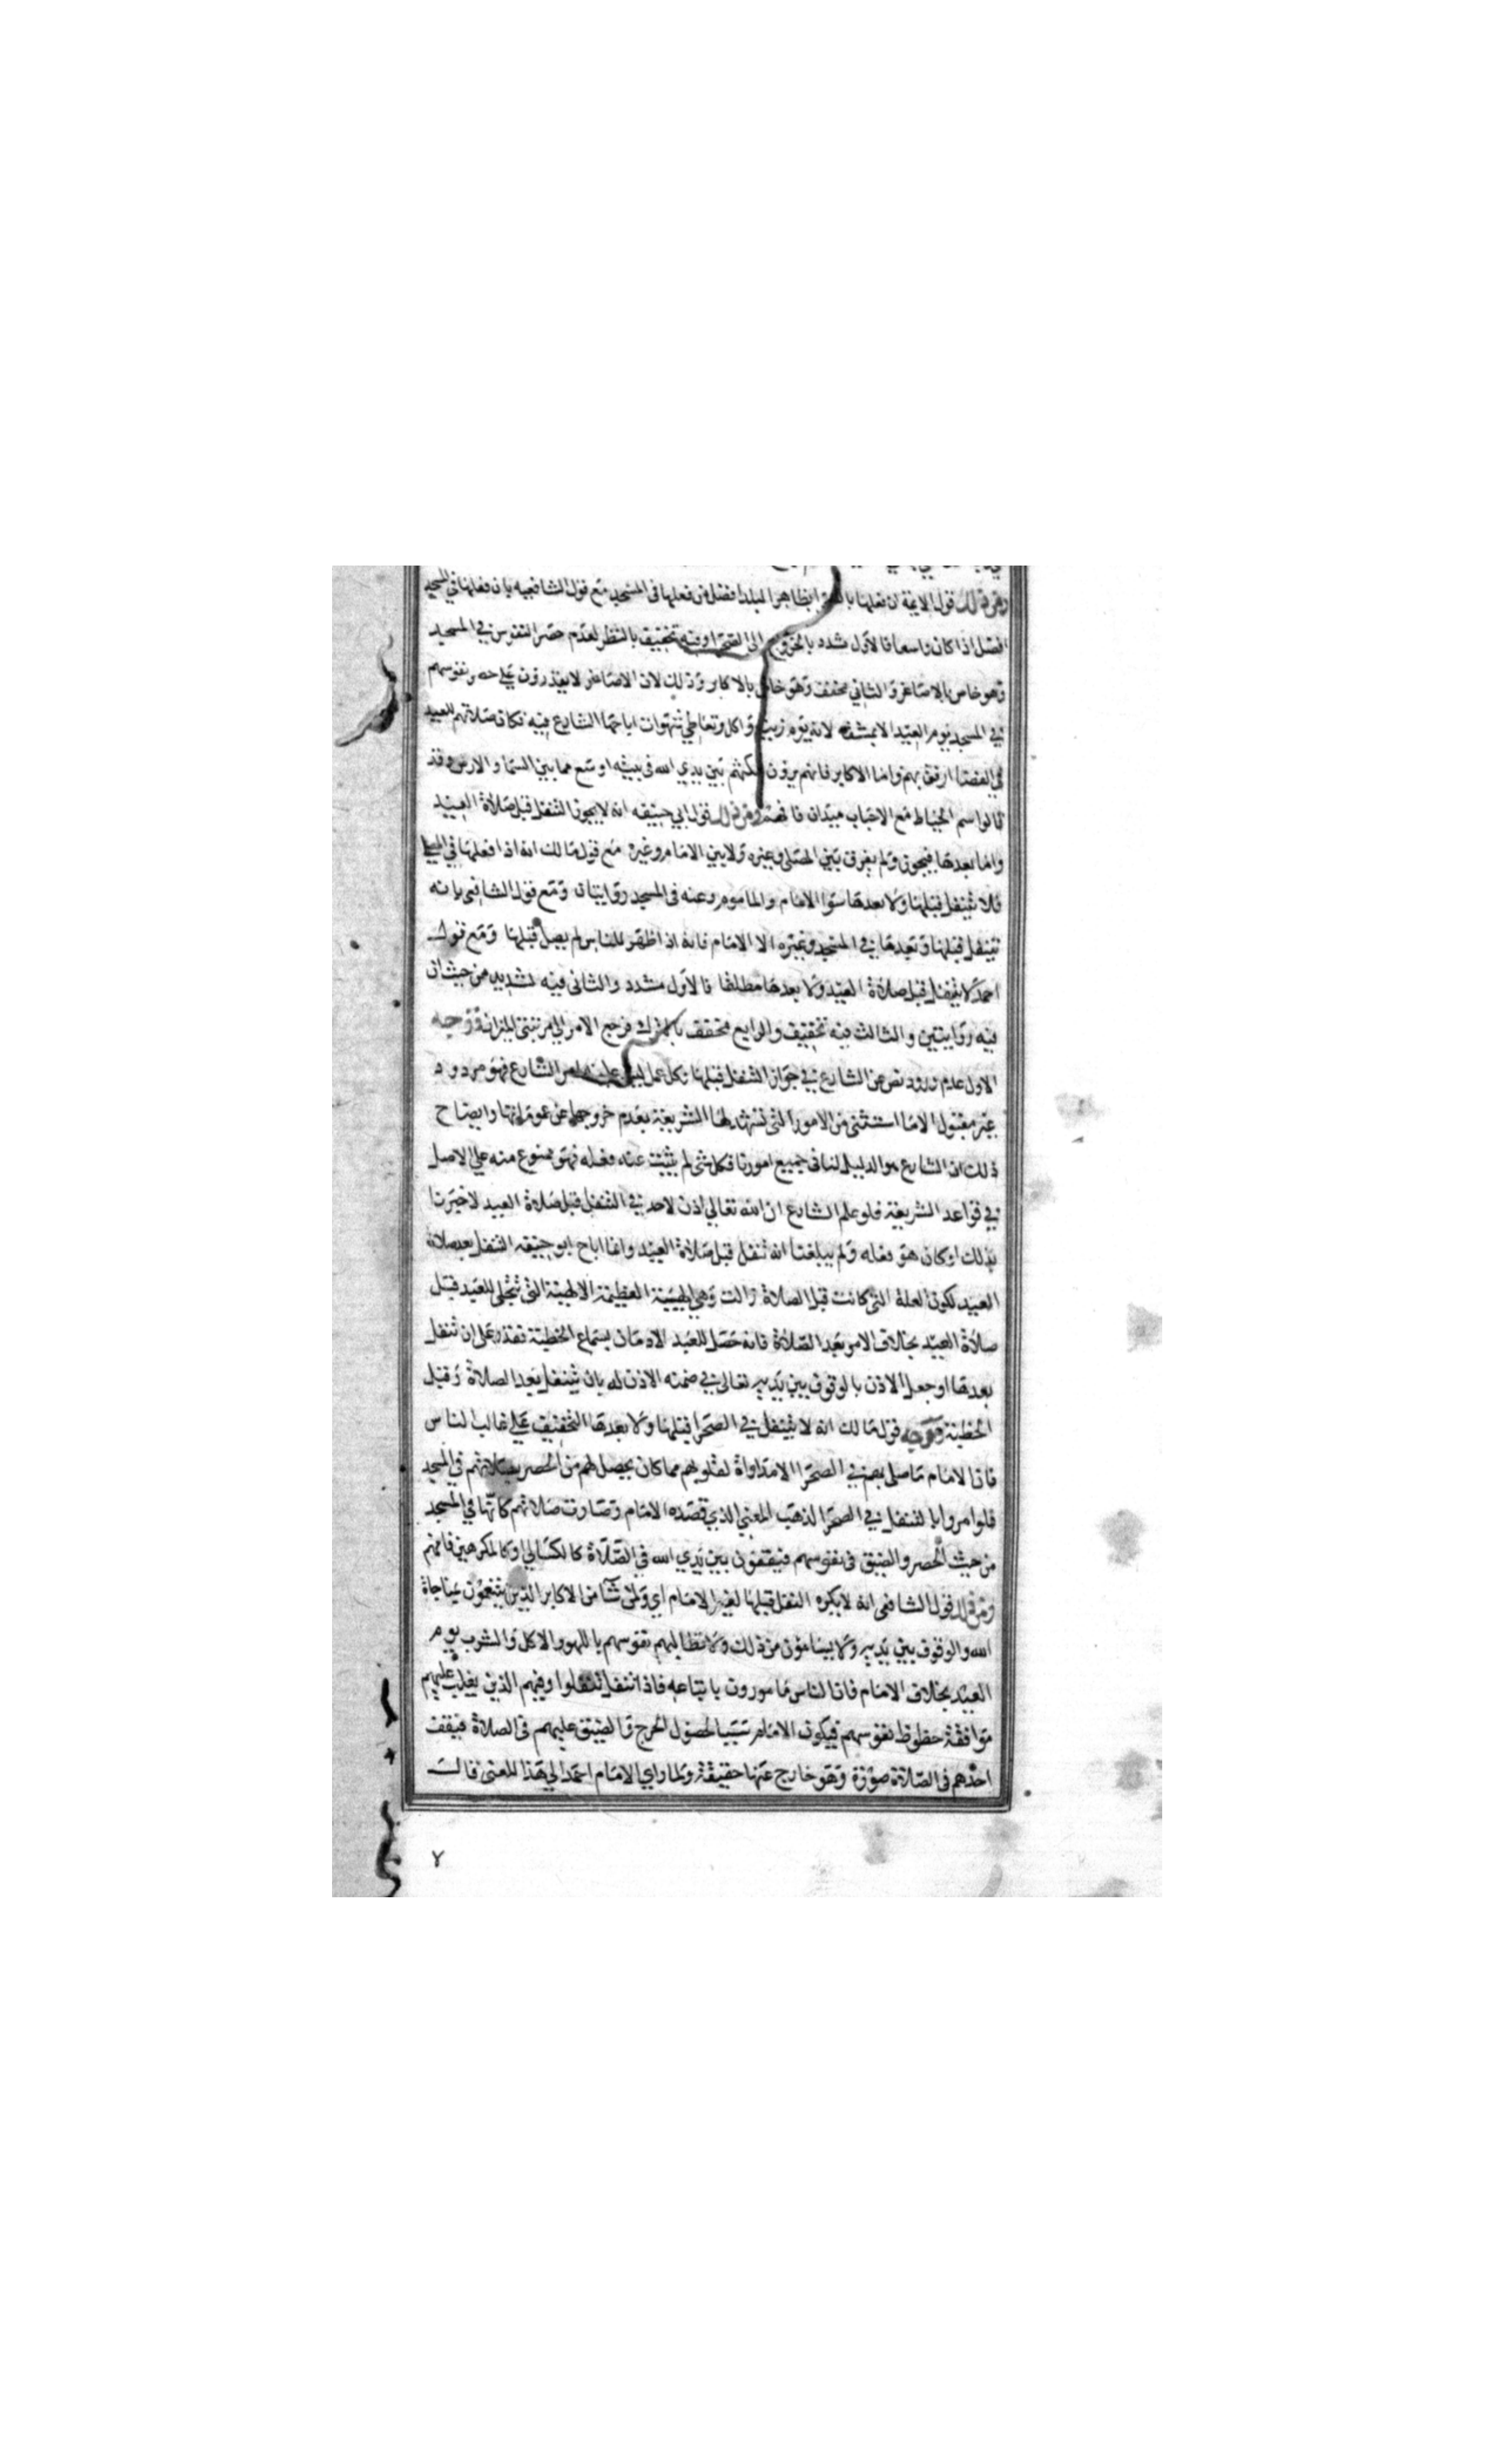 ومن ذلك قول الايمة ان فعلها بالصحرا بظاهر البلد افضل من فعلها فى المسجد مع قول الشافعيه بان فعلها في المسجد
افضل اذا كان واسعا فالاول مشدد بالخروج الى الصحرا وفيه تخفيف بالنظر لعدم حصر النفوس في المسجد
وهو خاص بالاصاغر والثاني مخفف وهو خاص بالاكابر وذلك لان الاصاغر لا يقدرون على حصر نفوسهم
في المسجد يوم العيد الا بمشقه لانه يوم زينة واكل وتعاطي شهوات اباحها الشارع فيه فكان صلاتهم للعيد
في الفضا ارفق بهم واما الاكابر فانهم يرون مكثهم بين يدي الله فى بيته اوسع مما بين السما والارض وقد
قالوا سم الخياط مع الاحباب ميدان فافهم ومن ذلك قول ابي حنيفه انه لا يجوز التنفل قبل صلاة العيد
واما بعدها فيجوز ولم يفرق بين المصلى وغيره ولا بين الامام وغيره مع قول مالك انه اذا فعلها في المصلى
فلا يتنفل قبلها ولا بعدها سوا الامام والماموم وعنه فى المسجد روايتان ومع قول الشافعى بانه
يتنفل قبلها وبعدها في المسجد وغيره الا الامام فانه اذا ظهر للناس لم يصل قبلها ومع قول
احمد لا يتنفل قبل صلاة العيد ولا بعدها مطلقا فالاول مشدد والثانى فيه تشديد من حيث ان
فيه روايتين والثالث فيه تخفيف والرابع مخفف بالترك فرجع الامر الى مرتبتى الميزان ووجه
الاول عدم ورود نص عن الشارع في جواز التنفل قبلها وكل عمل ليس عليه امر الشارع فهو مردود
غير مقبول الا ما استثنى من الامور التى تشهد لها الشريعة بعدم خروجها عن عموماتها وايضاح
ذلك ان الشارع هو الدليل لنا فى جميع امورنا فكل شى لم يثبت عنه فعله فهو ممنوع منه علي الاصل
في قواعد الشريعة فلو علم الشارع ان الله تعالي اذن لاحد في التنفل قبل صلاة العيد لاخبرنا
بذلك او كان هو فعله ولم يبلغنا انه تنفل قبل صلاة العيد وانما اباح ابو حنيفه التنفل بعد صلاة
العيد لكون العلة التى كانت قبل الصلاة زالت وهي الهيبة العظيمة الالهية التى تتجلى للعبد قبل
صلاة العيد بخلاف الامر بعد الصلاة فانه حصل للعبد الادمان بسماع الخطبة فقدر على ان تنفل
بعدها او جعل الاذن بالوقوف بين يديه تعالى في ضمنه الاذن له بان يتنفل بعد الصلاة وقبل
الخطبة ووجه قول مالك انه لا يتنفل في الصحرا قبلها ولا بعدها التخفيف على غالب الناس
فان الامام ما صلى بهم في الصحرا الا مداواة لقلوبهم مما كان يحصل لهم من الحصر بصلاتهم في المسجد
فلو امروا بالتنفل في الصحرا لذهب المعنى الذي قصده الامام وصارت صلاتهم كانها في المسجد
من حيث الحصر والضيق فى نفوسهم فيقفون بين يدي الله فى الصلاة كالكسالي او كالمكرهين فافهم
ومن ذلك قول الشافعى انه لا يكره التنفل قبلها لغير الامام اي ولمن شا من الاكابر الذين يتنعمون بمناجاة
الله والوقوف بين يديه ولا يسامون من ذلك ولا تطالبهم نفوسهم باللهو والاكل والشرب يوم
العيد بخلاف الامام فان الناس مامورون باتباعه فاذا تنفل تنفلوا وفيهم الذين يغلب عليهم
موافقة حظوظ نفوسهم فيكون الامام سببا لحصول الحرج والضيق عليهم فى الصلاة فيقف
احدهم فى الصلاة صورة وهو خارج عنها حقيقة ولما راي الامام احمد الي هذا المعنى قال
٧